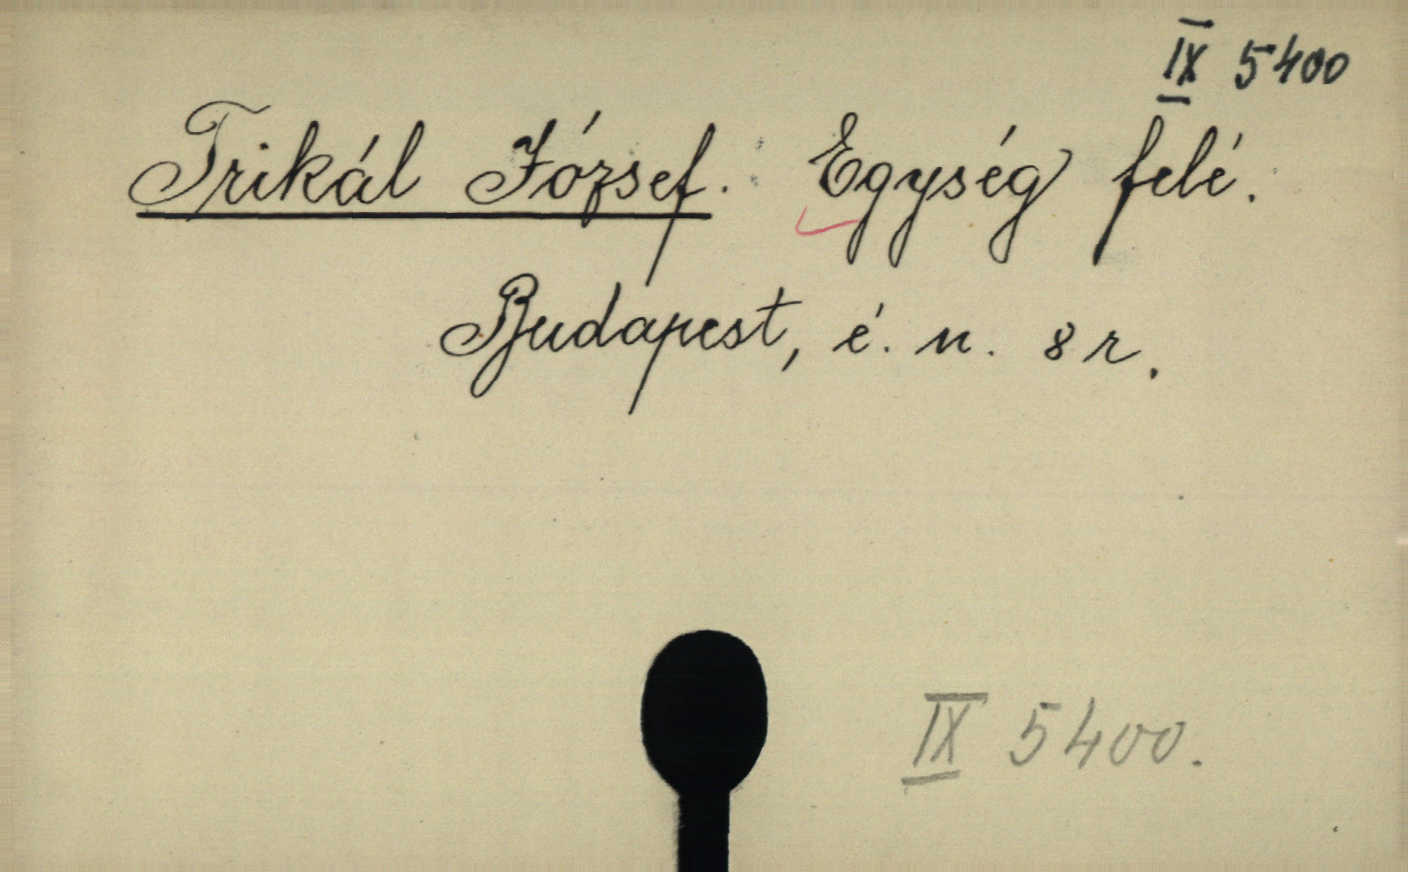 IX 5400
Trikál József. Egység felé.
Budapest, é. n. 8 r.
IX 5400.